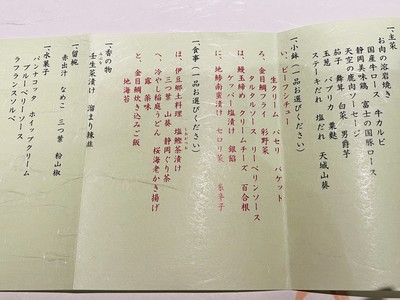 一、主菜
お肉の溶岩焼き
国産牛ロース 牛カルビ
静岡美味鶏 富士の国豚ロース
天空の鹿肉ソーセージ
茄子 舞茸 白菜 男爵芋
玉葱 パプリカ 粟麩
ステーキだれ 塩だれ 天城山葵
一、小鉢(一品お選びください)
い、ビーフシチュー
生クリーム パセリ バケット
ろ、金目鯛フライ 彩野菜
タルタルソース リーペリンソース
ケッパー塩漬け 銀餡
は、鰻玉締め クリームチーズ 百合根
に、地鯵南蛮漬け セロリ菜
一、食事(一品お選びください)
は、伊豆郷土料理 塩鰹茶漬け
三つ葉 山葵 静岡ぐり茶
へ、冷やし稲庭うどん 桜海老かき揚げ
露 薬味
と、金目鯛炊き込みご飯
地海苔
一、香の物
壬生菜漬け 溜まり辣韮
一、留椀
赤出汁 なめこ 三つ葉 粉山椒
一、水菓子
パンナコッタ ホイップクリーム
ブルーベリーソース
ラフランスソルベ